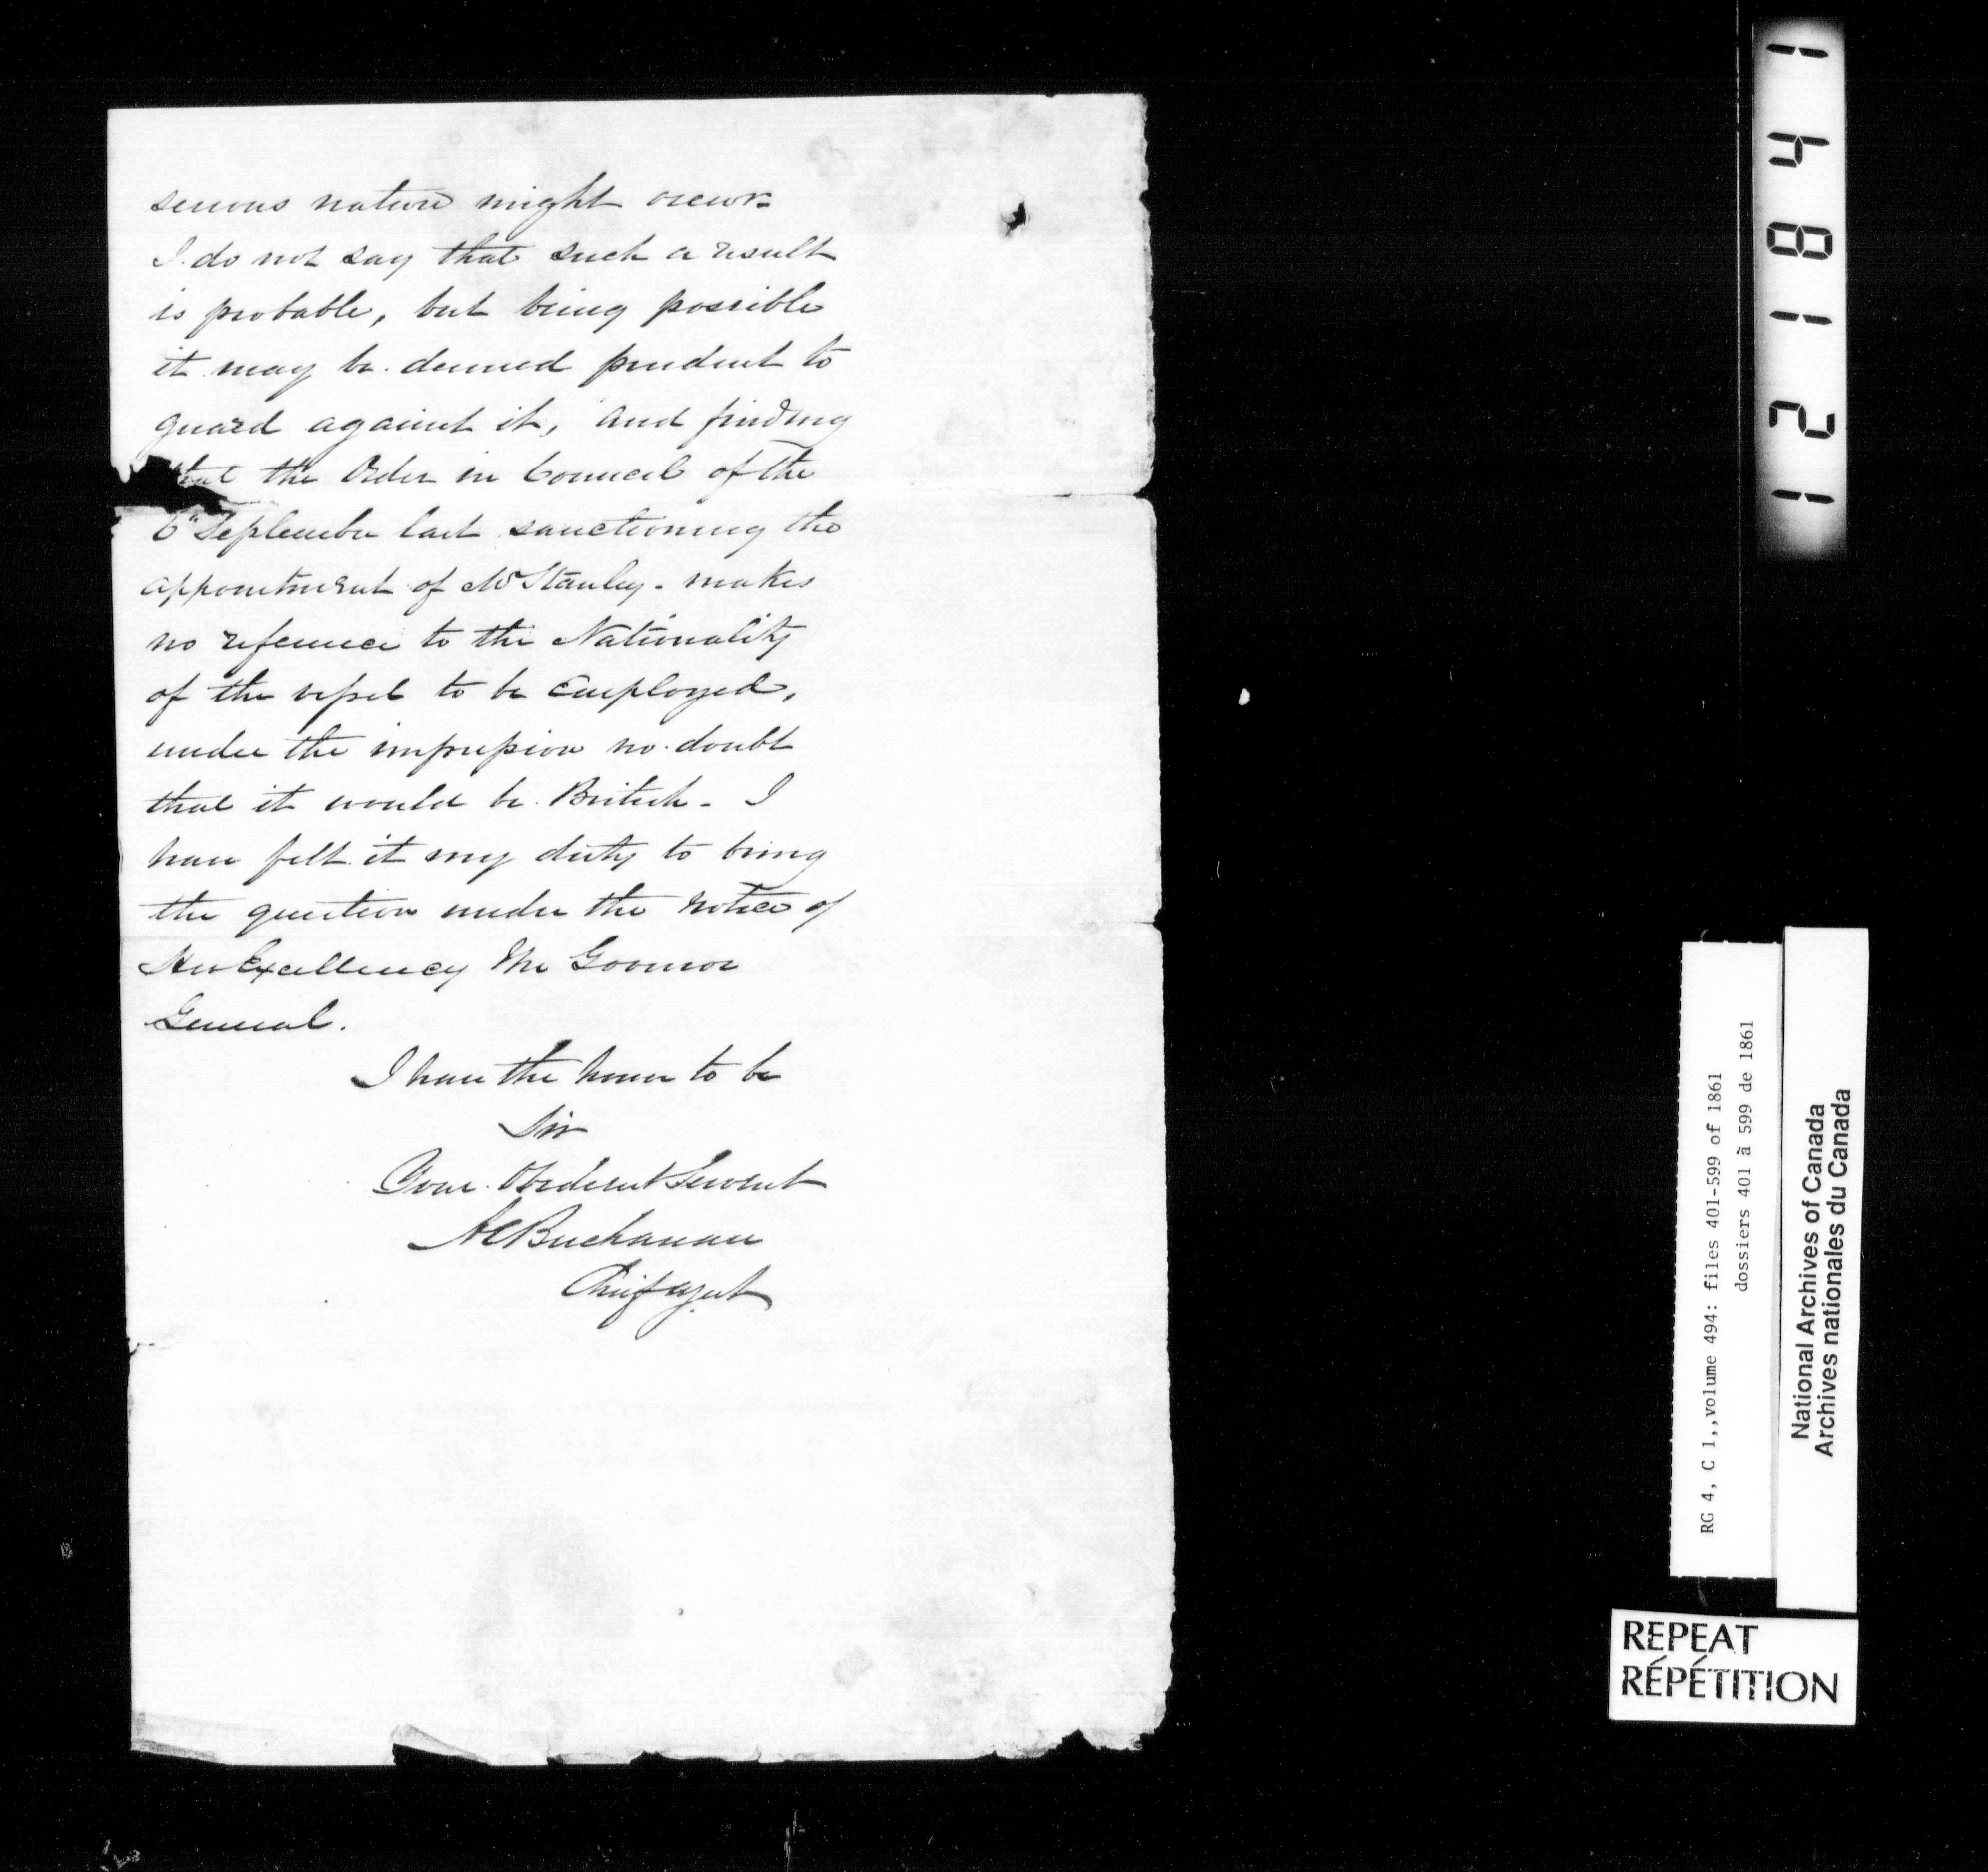 serious nature might occur.
I do not say that such a result
is probable, but being possible
it may be deemed prudent to
guard against it, and finding
that the Order in Council of the
6th September last sanctioning the
appointment of Mr Stanley - makes
no reference to the Nationality
of the vessel to be Employed,
under the impression no doubt
that it would be British - I
have felt it my duty to bring
the question under the notice of
His Excellency the Governor
General.
I have the honor to be
Sir
Your Obedient Servant
AC Buchanan
Chief Agent
121841
RG 4, C 1,,volume 494: files 401-599 of 1861
dossiers 401 à 599 de 1861
National Archives of Canada
Archives nationales du Canada
REPEAT
RÉPÉTITION